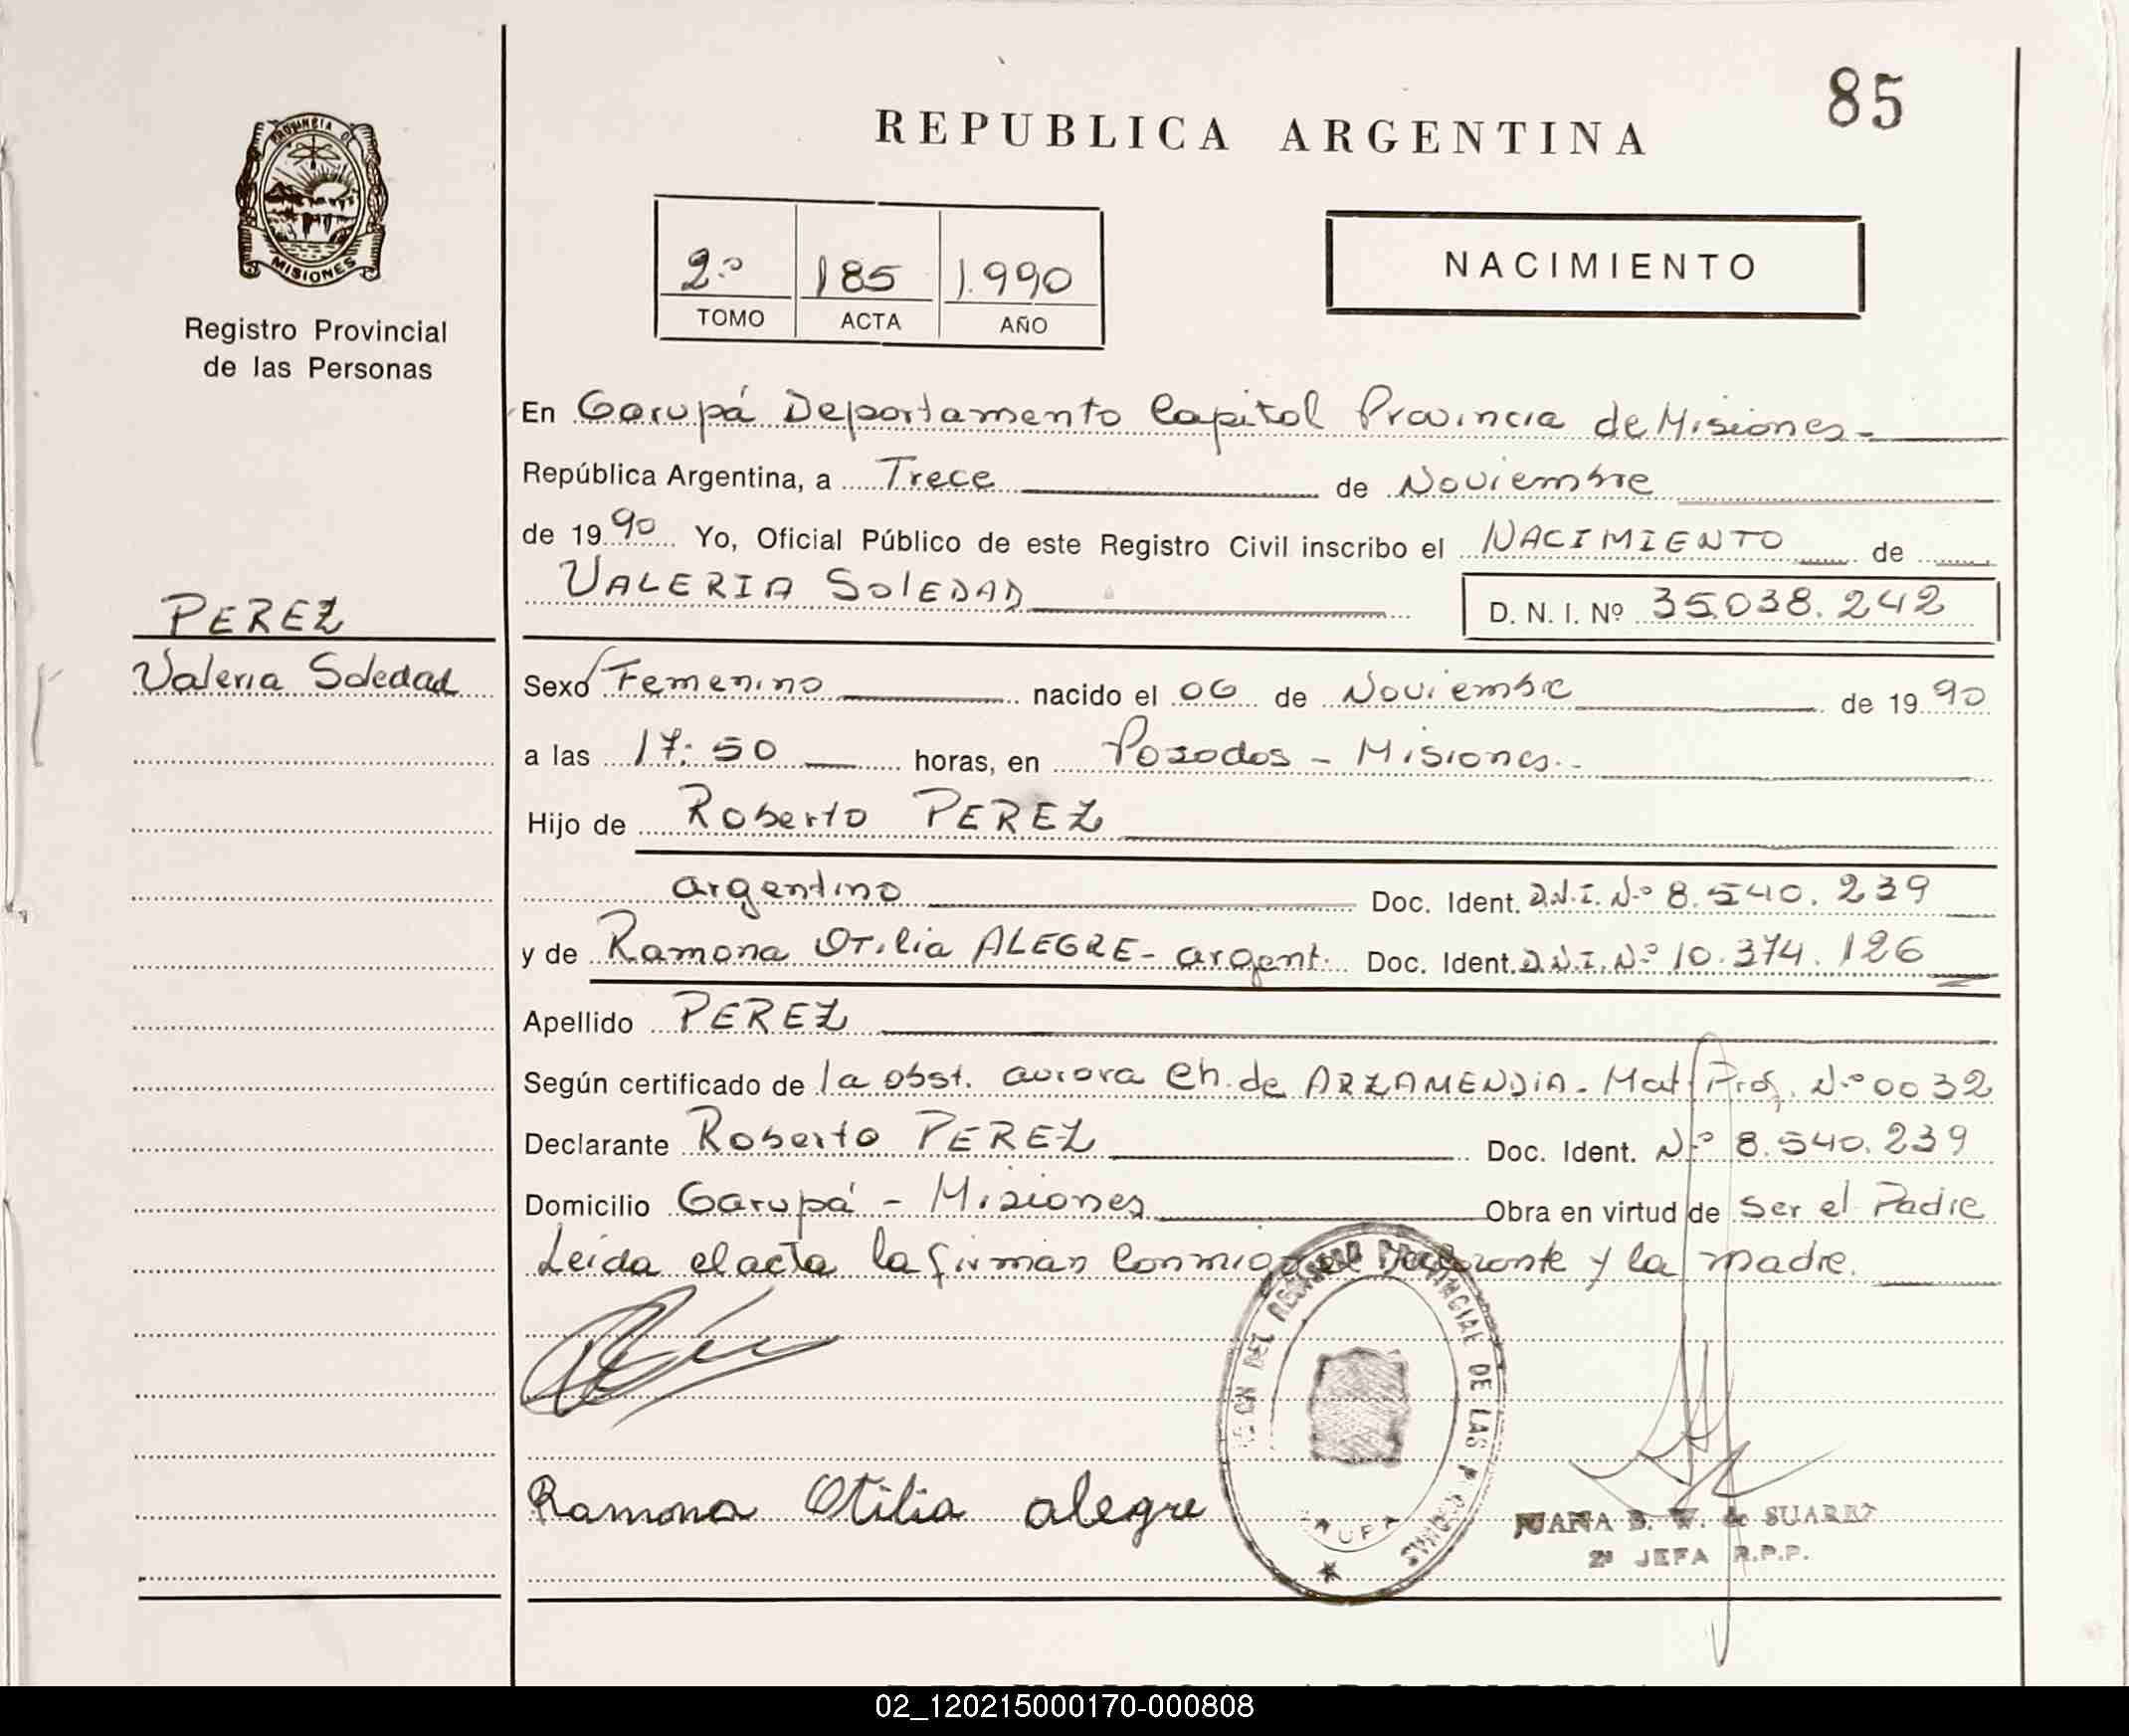 85
REPUBLICA ARGENTINA
PROVINCIA DE
MISIONES
Registro Provincial
de las Personas
2º 185 1.990
TOMO ACTA AÑO
NACIMIENTO
En Garupá Departamento Capital Provincia de Misiones-
República Argentina, a Trece de Noviembre
de 1990 Yo, Oficial Público de este Registro Civil inscribo el NACIMIENTO de
VALERIA SOLEDAD D. N. I. Nº 35.038.242
PEREZ
Valeria Soledad
Sexo Femenino nacido el 06 de Noviembre de 1990
a las 17:50 horas, en Posadas - Misiones.-
Hijo de Roberto PEREZ
argentino Doc. Ident. D.N.I. Nº 8.540.239
y de Ramona Otilia ALEGRE- argent. Doc. Ident. D.N.I. Nº 10.374.126
Apellido PEREZ
Según certificado de la obst. aurora Ch. de ARZAMENDIA- Mat. Prof. Nº 0032
Declarante Roberto PEREZ Doc. Ident. Nº 8.540.239
Domicilio Garupá - Misiones Obra en virtud de ser el Padre
Leida el acta la firman conmigo el declarante y la madre.
DEL REGISTRO PROVINCIAL DE LAS PERSONAS
Ramona Otilia alegre
JUANA B. W. de SUAREZ
2ª JEFA R.P.P.
02_120215000170-000808